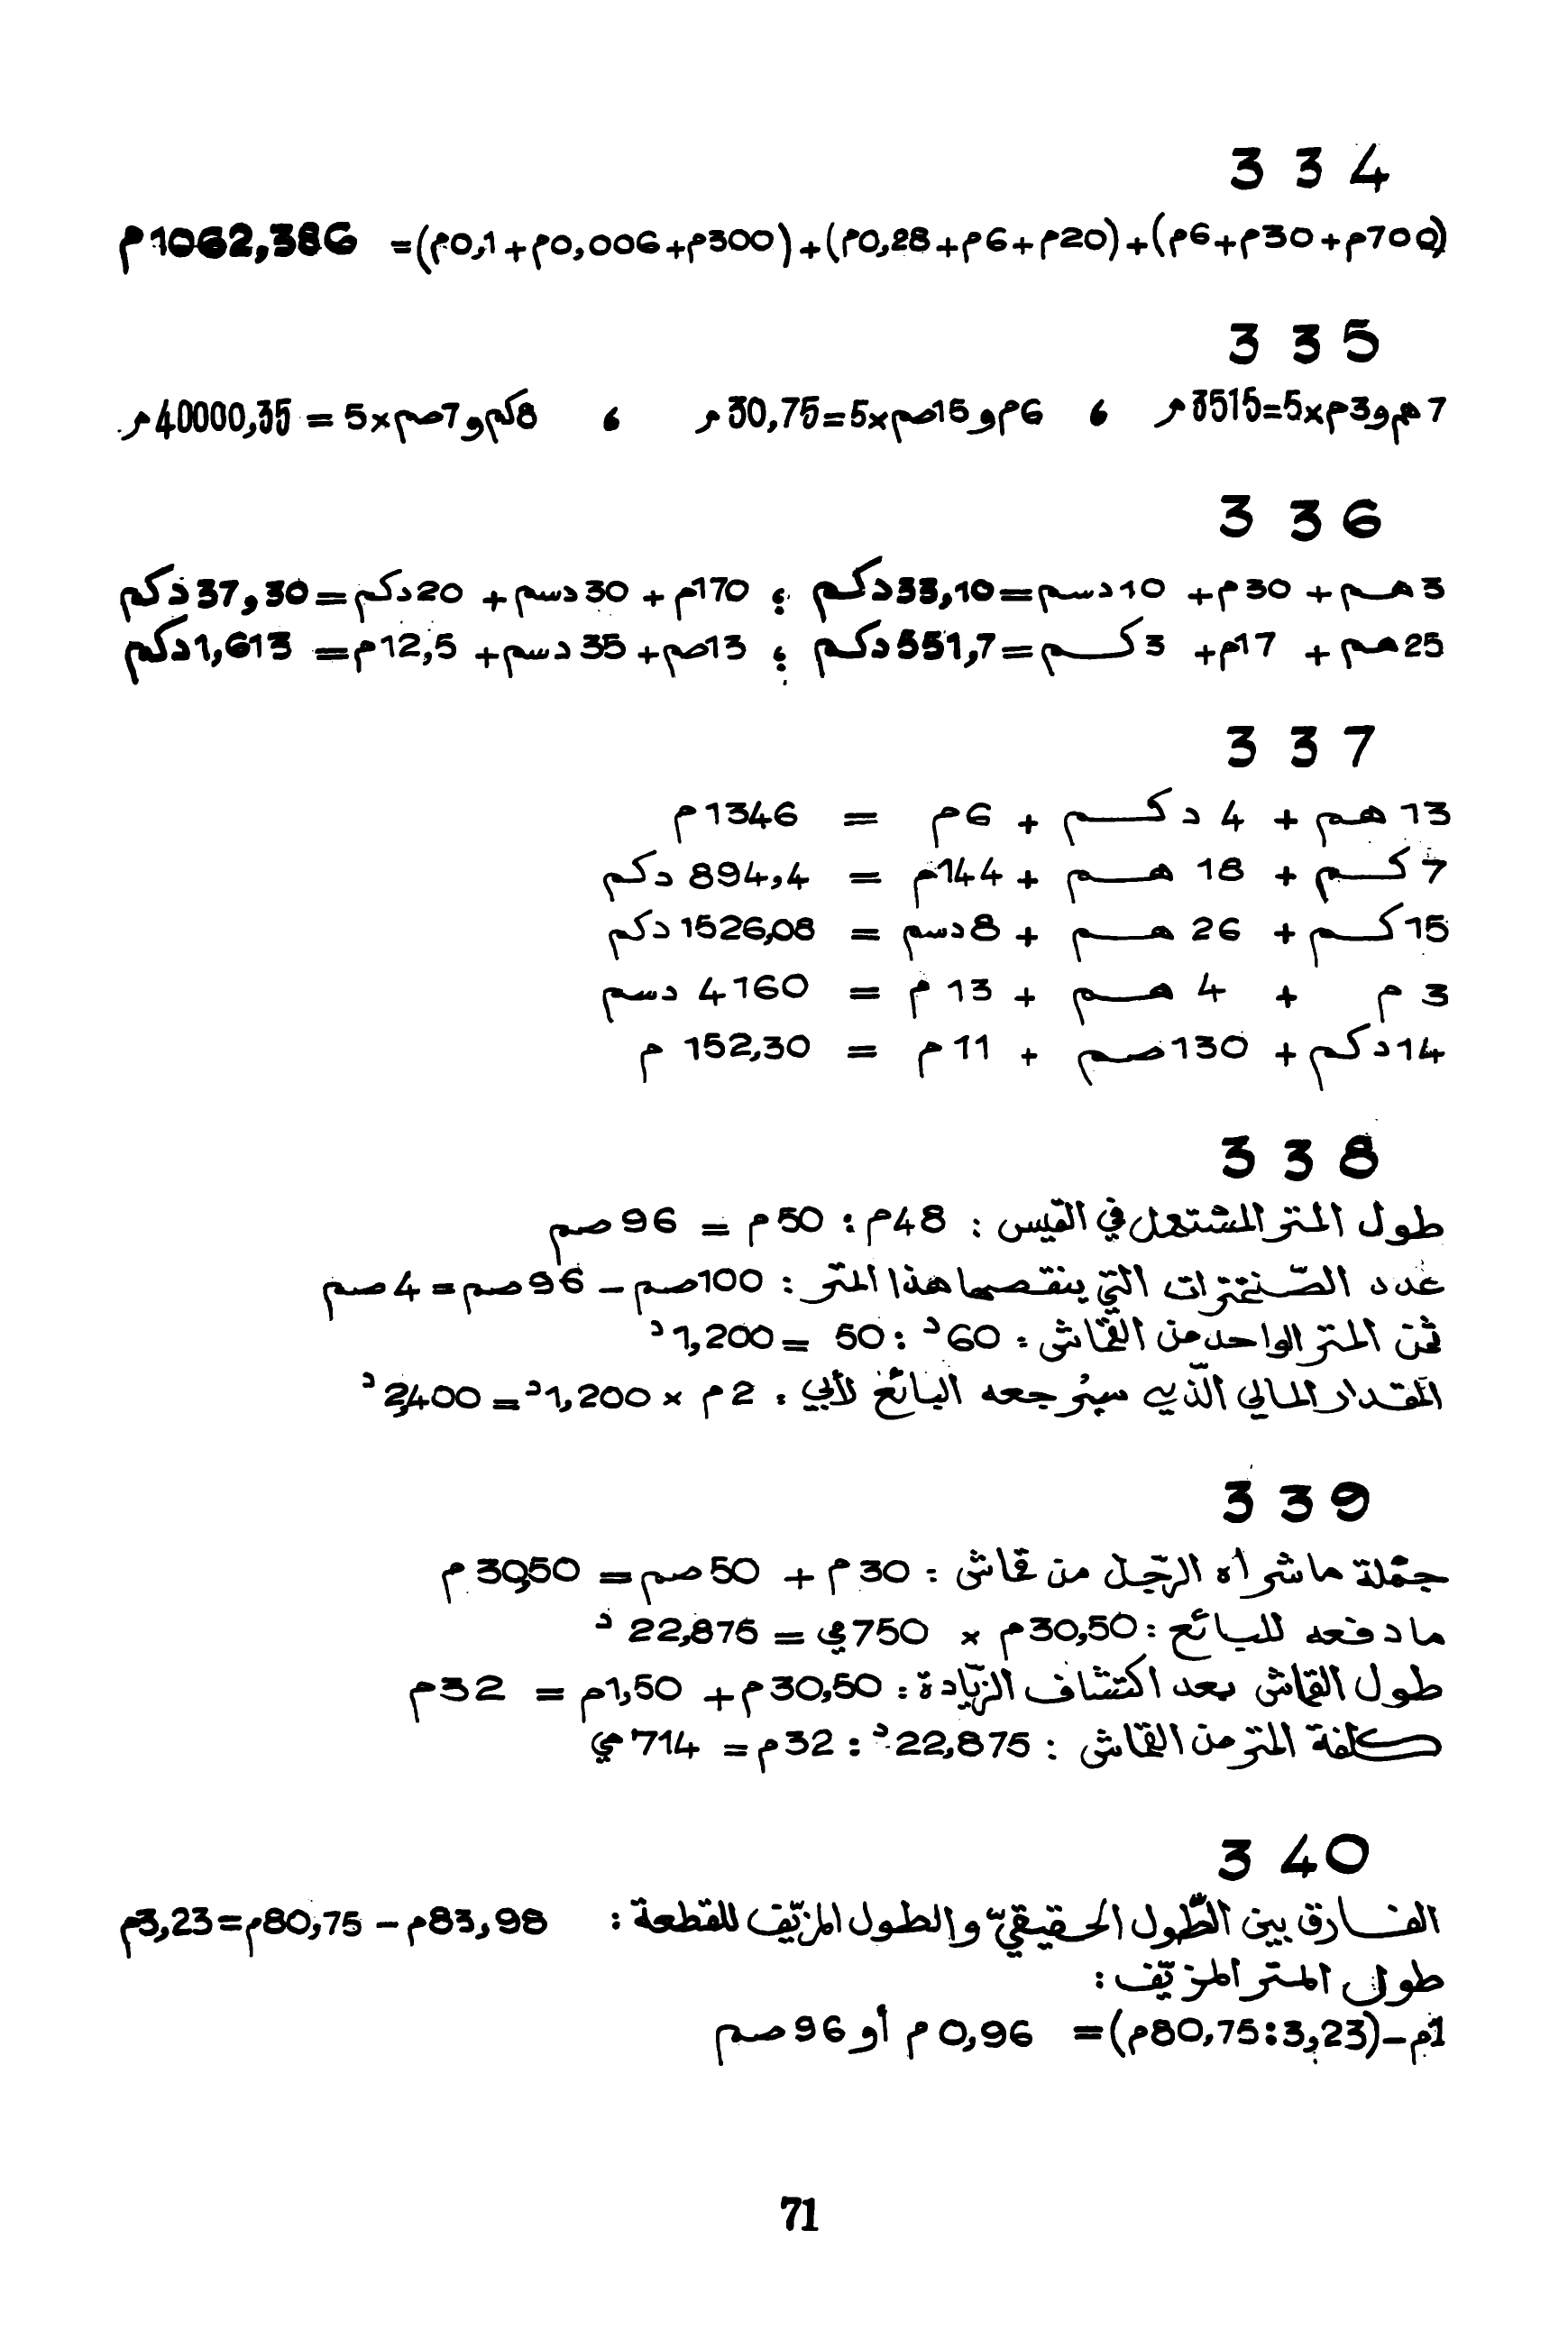 334
(700م+30م+6م)+(20م+6م+0,28م)+(300م+0,006م+0,1م)= 1062,386م
335
7هم و3م×5=3515م ، 6م و15صم×5=30,75م ، 8كم و7صم×5 = 40000,35م
336
3هم + 30م + 10دسم=33,10دكم ؛ 170م + 30دسم + 20دكم=37,30دكم
25هم + 17م + 3كم=551,7دكم ؛ 13صم + 35دسم + 12,5م= 1,613دكم
337
13هم + 4دكم + 6م = 1346م
7كم + 18هم + 144م = 894,4 دكم
15كم + 26هم + 8دسم = 1526,08 دكم
3م + 4هم + 13م = 4160 دسم
14دكم + 130صم + 11م = 152,30 م
338
طول المتر المشتعل في القيس : 48م : 50م = 96صم
عدد الصّنتمترات التي ينقصها هذا المتر : 100صم – 96صم = 4صم
ثمن المتر الواحد من القماش : 60د : 50 = 1,200د
المقدار المالي الّذي سيُرجعه البائع لأبي : 2م × 1,200د = 2,400د
339
جملة ما شراه الرّجل من قماش : 30م + 50صم = 30,50م
ما دفعه للبائع : 30,50م × 750مي = 22,875د
طول القماش بعد اكتشاف الزّيادة : 30,50م + 1,50م = 32م
كلفة المتر من القماش : 22,875د : 32م = 714مي
340
الفارق بين الطّول الحقيقيّ والطول المزيّف للقطعة : 83,98م – 80,75م=3,23م
طول المتر المزيّف :
1م–(3,23:80,75م)= 0,96م أو 96صم
71